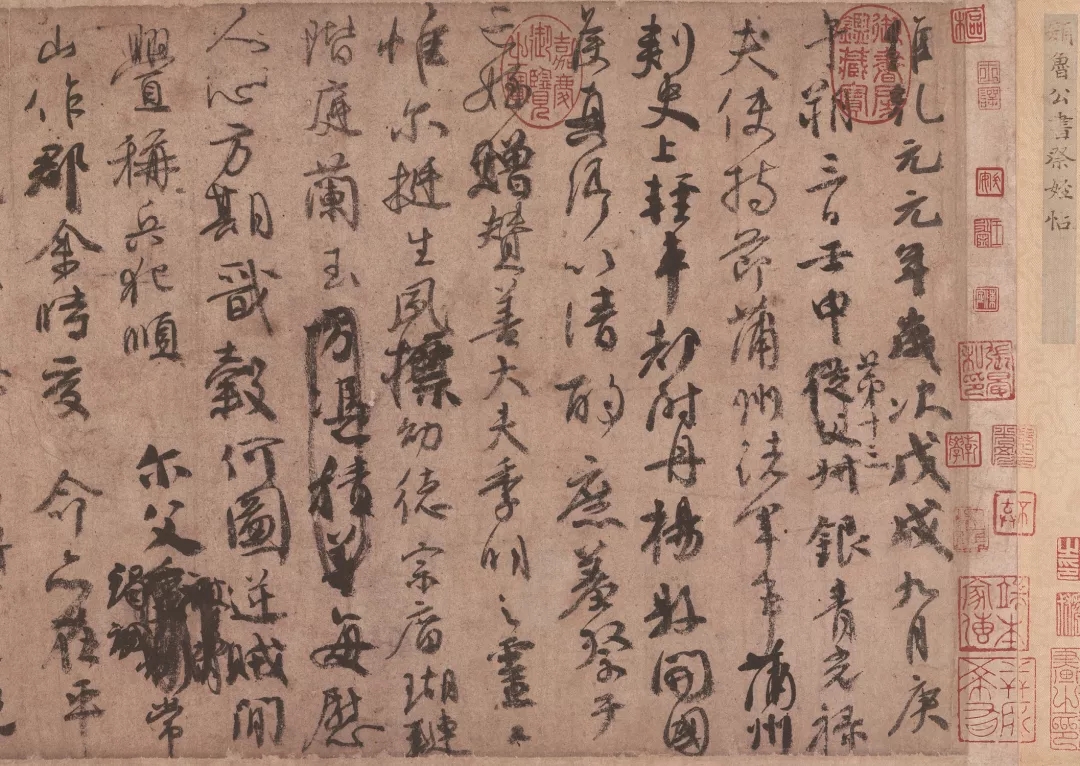 魯公書祭姪帖
維乾元元年歲次戊戌九月庚
午朔三日壬申第十三從父叔銀青光祿
夫使持節蒲州諸軍事蒲州
刺史上輕車都尉丹楊縣開國
侯真卿以清酌庶羞祭于
亡姪贈贊善大夫季明之靈曰
惟尔挺生夙標幼德宗廟瑚璉
階庭蘭玉方憑積善每慰
人心方期戩穀何圖逆賊間
釁稱兵犯順 尔父竭誠常
山作郡余時受 命亦在平
御書房鑑藏寶
嘉慶御覽之寶